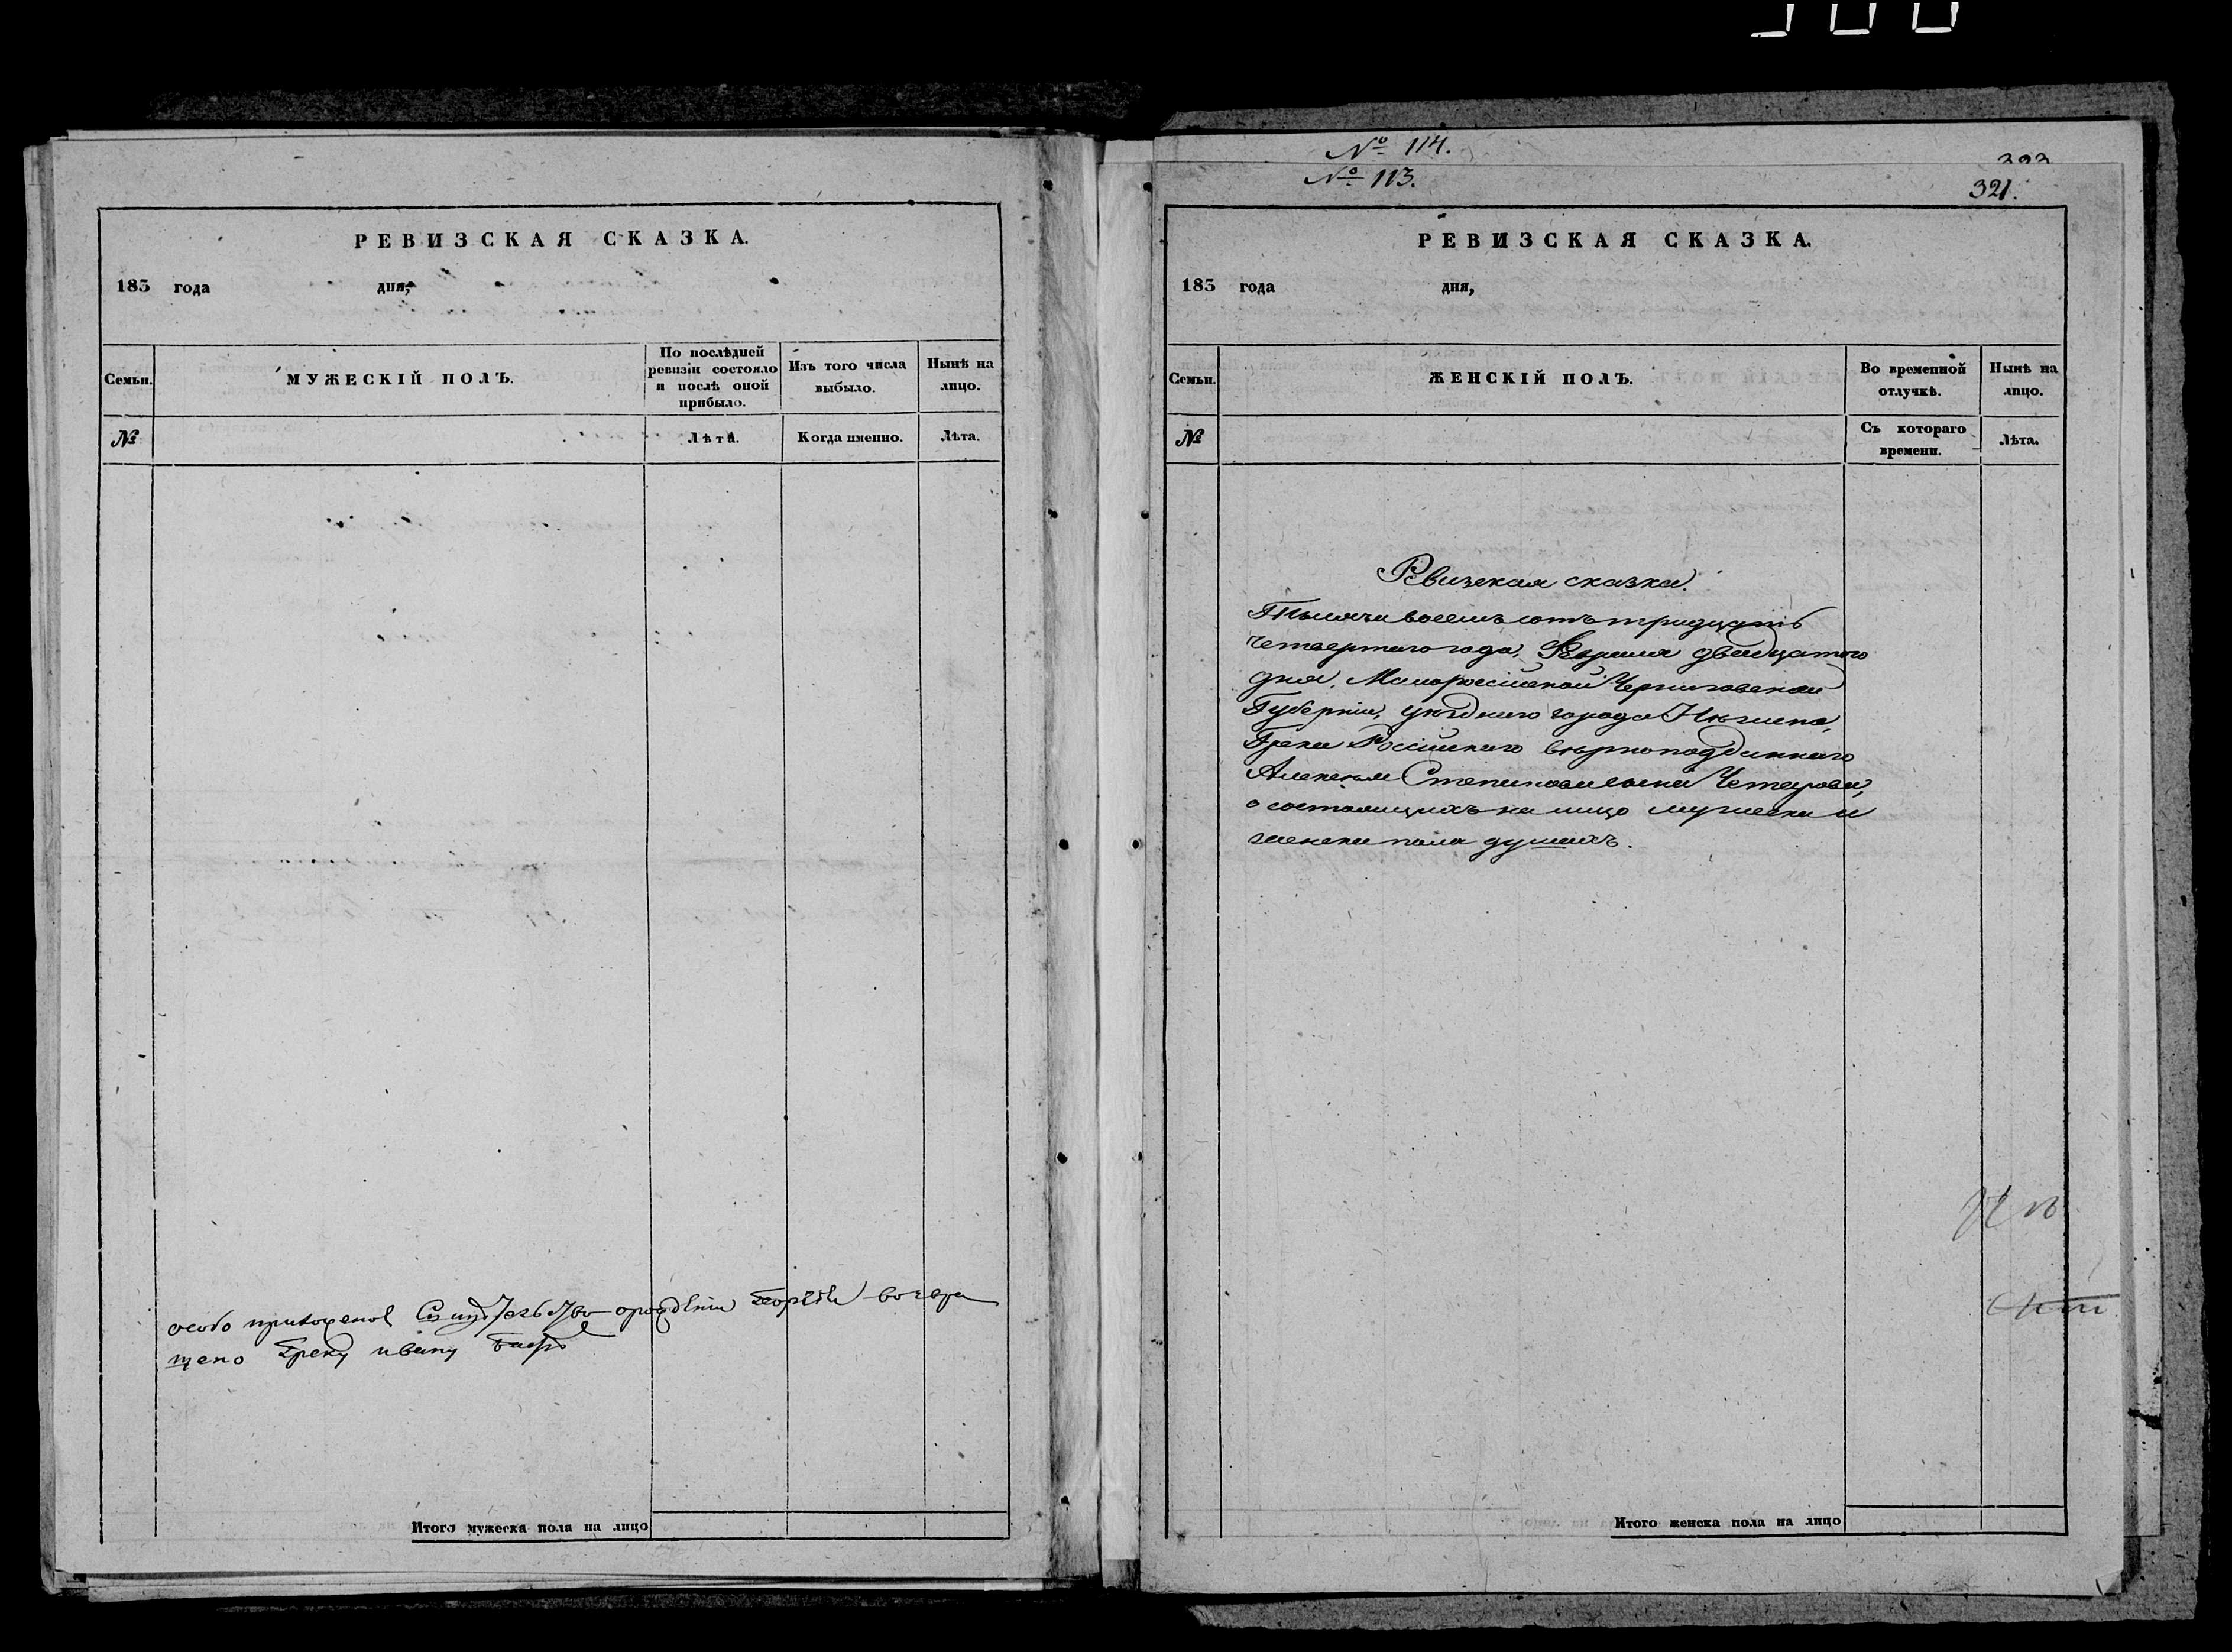 РЕВИЗСКАЯ СКАЗКА.
183 года дня,
Семьи.
МУЖЕСКІЙ ПОЛЪ.
По послѣдней ревизіи состояло и послѣ оной прибыло.
Изъ того числа выбыло.
Нынѣ на лицо.
№
Лѣта.
Когда именно.
Лѣта.
особо приложенное
щено Греку ивану
Итого мужеска пола на лицо
№ 114.
№ 113.
321.
РЕВИЗСКАЯ СКАЗКА.
183 года дня,
Семьи.
ЖЕНСКІЙ ПОЛЪ.
Во временной отлучкѣ.
Нынѣ на лицо.
№
Съ котораго времени.
Лѣта.
Ревизская сказка.
Тысяча восемь сотъ тридцать
четвертаго года, двадцатого
дня, Малороссійской Черниговской
Губерніи, уѣзднаго города Нѣжина,
Грека Россійскаго вѣрноподданнаго
Алексѣя Степановича сына
о состоящихъ на лицо мужеска и
женска пола душахъ.
Итого женска пола на лицо